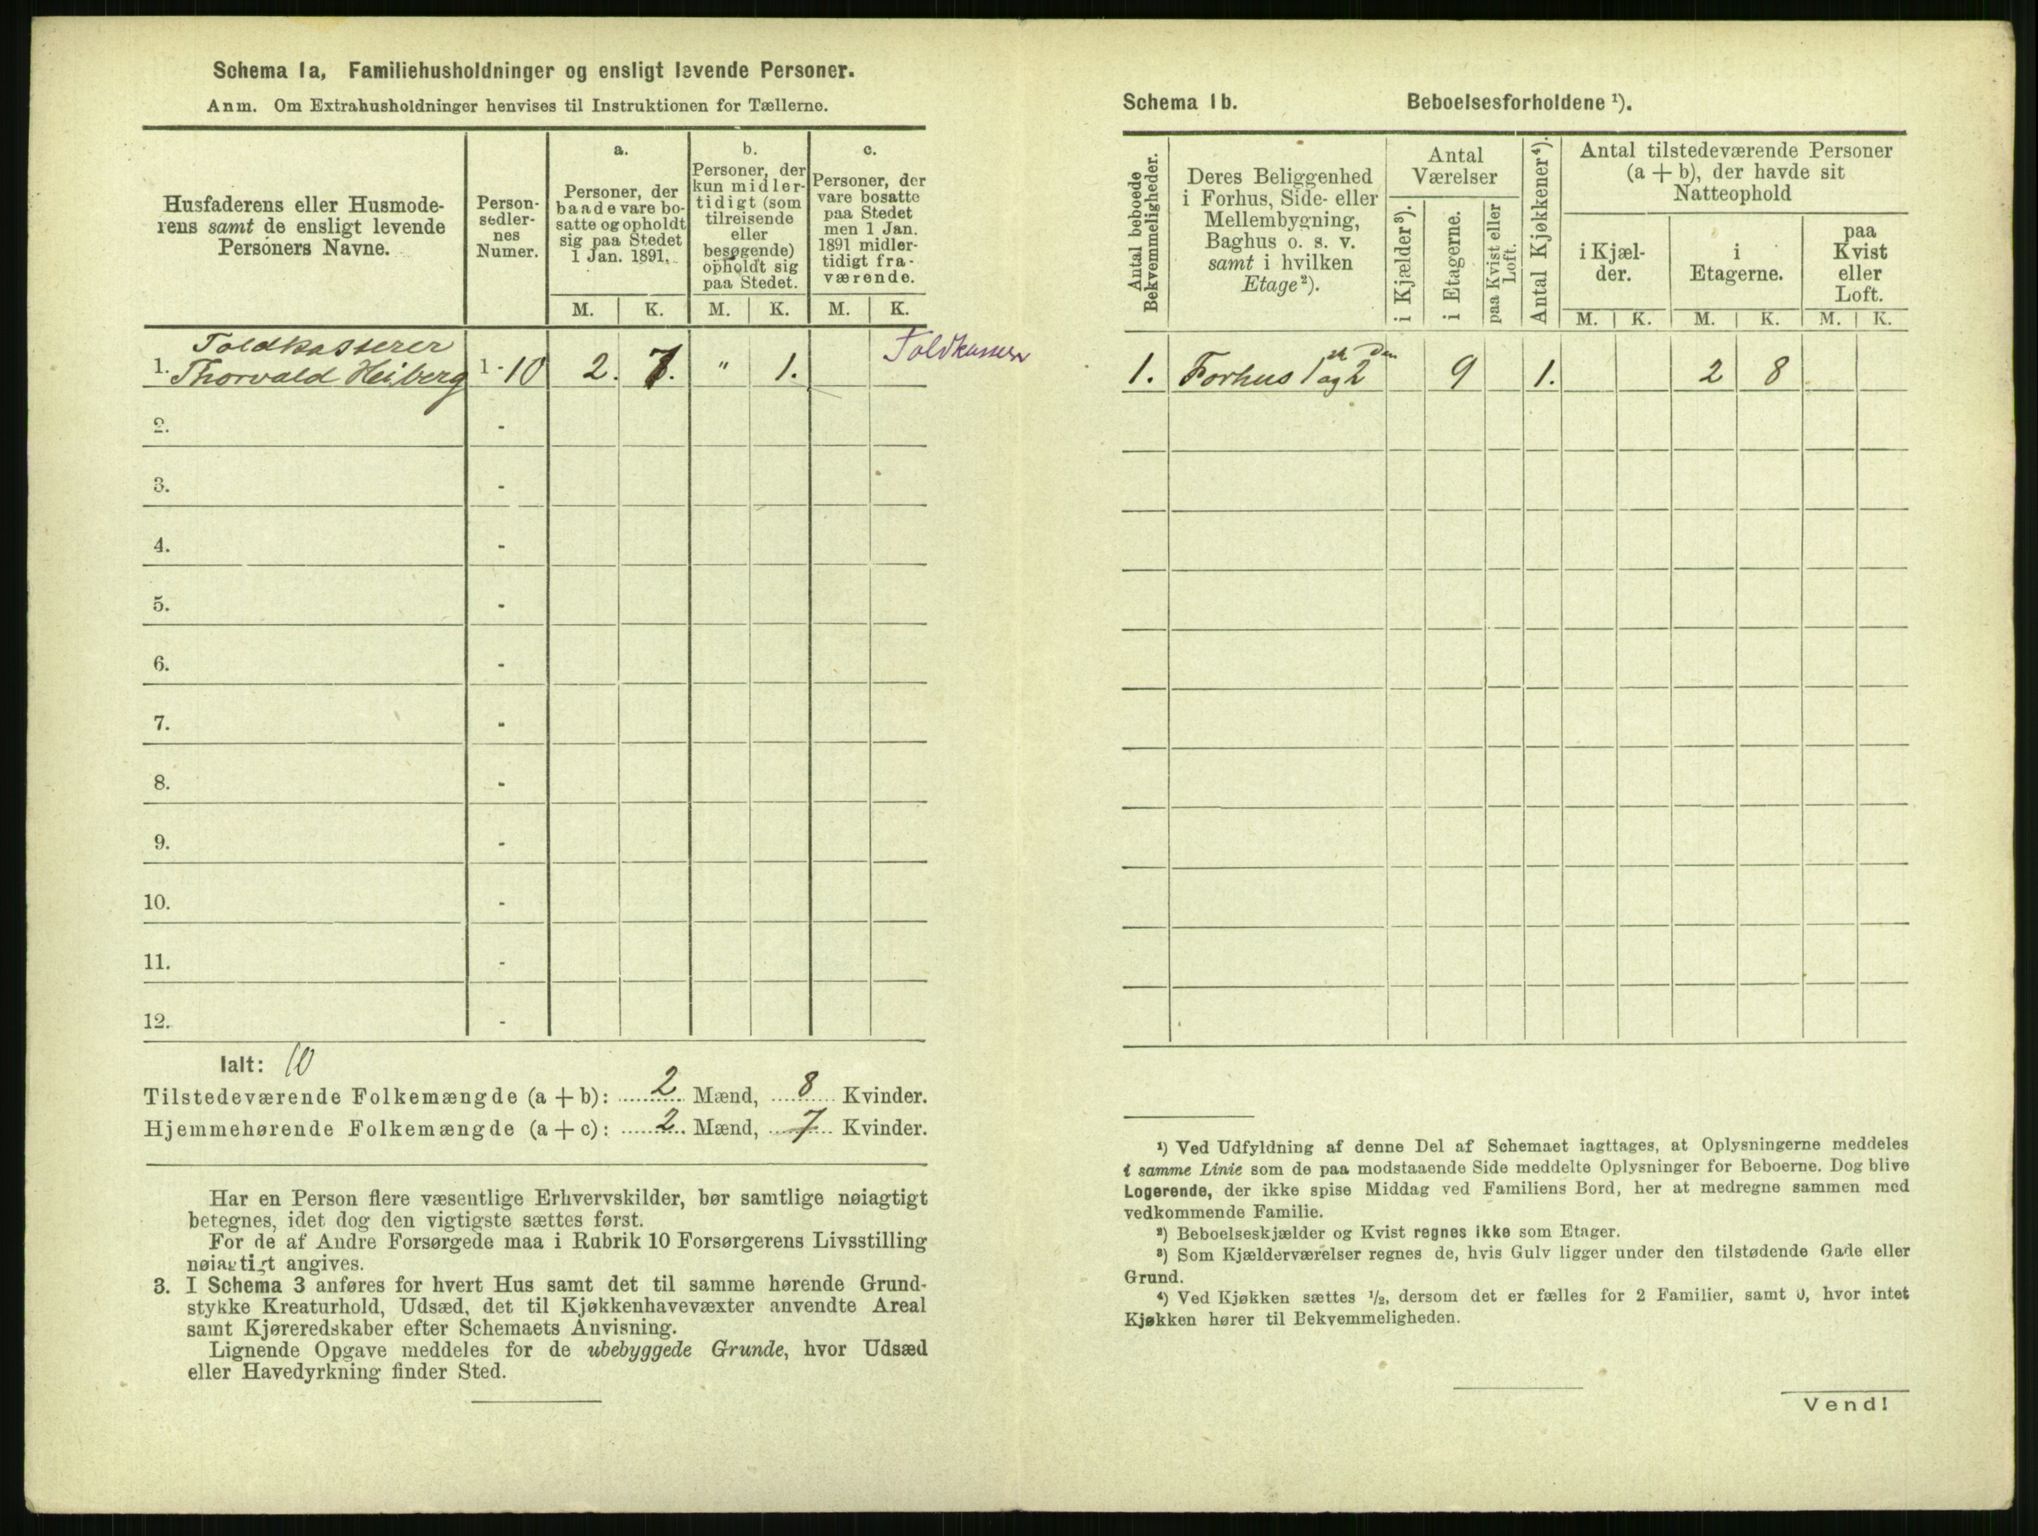 Schema 1a, Familiehusholdninger og ensligt levende Personer.
Anm. Om Extrahusholdninger henvises til Instruktionen for Tællerne.
Husfaderens eller Husmode-
rens samt de ensligt levende
Personers Navne.
Person-
sedler-
nes
Numer.
a.
Personer, der
baade vare bo-
satte og opholdt
sig paa Stedet
1 Jan. 1891.
b.
Personer, der
kun midler-
tidigt (som
tilreisende
eller
besøgende)
opholdt sig
paa Stedet.
c.
Personer, der
vare bosatte
paa Stedet
men 1 Jan.
1891 midler-
tidigt fra-
værende.
M. K. M. K. M. K.
Toldkasserer
1. Thorvald Heiberg 1-10 2. 7. " 1. Toldkasserer
2. -
3. -
4. -
5. -
6. -
7. -
8. -
9. -
10. -
11. -
12. -
Ialt: 10
Tilstedeværende Folkemængde (a + b): 2 Mænd, 8 Kvinder.
Hjemmehørende Folkemængde (a + c): 2 Mænd, 7 Kvinder.
Har en Person flere væsentlige Erhvervskilder, bør samtlige nøiagtigt
betegnes, idet dog den vigtigste sættes først.
For de af Andre Forsørgede maa i Rubrik 10 Forsørgerens Livsstilling
nøiagtigt angives.
3. I Schema 3 anføres for hvert Hus samt det til samme hørende Grund-
stykke Kreaturhold, Udsæd, det til Kjøkkenhavevæxter anvendte Areal
samt Kjøreredskaber efter Schemaets Anvisning.
Lignende Opgave meddeles for de ubebyggede Grunde, hvor Udsæd
eller Havedyrkning finder Sted.
Schema 1b. Beboelsesforholdene ¹).
Antal beboede
Bekvemmeligheder.
Deres Beliggenhed
i Forhus, Side- eller
Mellembygning,
Baghus o. s. v.
samt i hvilken
Etage ²).
Antal
Værelser
i Kjælder ³).
i Etagerne.
paa Kvist eller
Loft.
Antal Kjøkkener ⁴).
Antal tilstedeværende Personer
(a + b), der havde sit
Natteophold
i Kjæl-
der.
i
Etagerne.
paa
Kvist
eller
Loft.
M. K. M. K. M. K.
1. Forhus 1 og 2den 9 1. 2 8
¹) Ved Udfyldning af denne Del af Schemaet iagttages, at Oplysningerne meddeles
i samme Linie som de paa modstaaende Side meddelte Oplysninger for Beboerne. Dog blive
Logerende, der ikke spise Middag ved Familiens Bord, her at medregne sammen med
vedkommende Familie.
²) Beboelseskjælder og Kvist regnes ikke som Etager.
³) Som Kjælderværelser regnes de, hvis Gulv ligger under den tilstødende Gade eller
Grund.
⁴) Ved Kjøkken sættes ½, dersom det er fælles for 2 Familier, samt 0, hvor intet
Kjøkken hører til Bekvemmeligheden.
Vend!